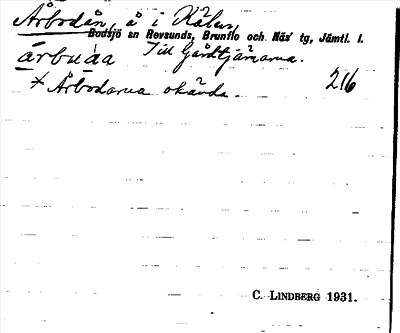 Årbodån, å i Kälen,
Bodsjö sn Revsunds, Brunflo och Näs' tg, Jämtl. l.
årbuåa Till Gårdtjärnarna.
* Årbodarna okända. 216
C. LINDBERG 1931.